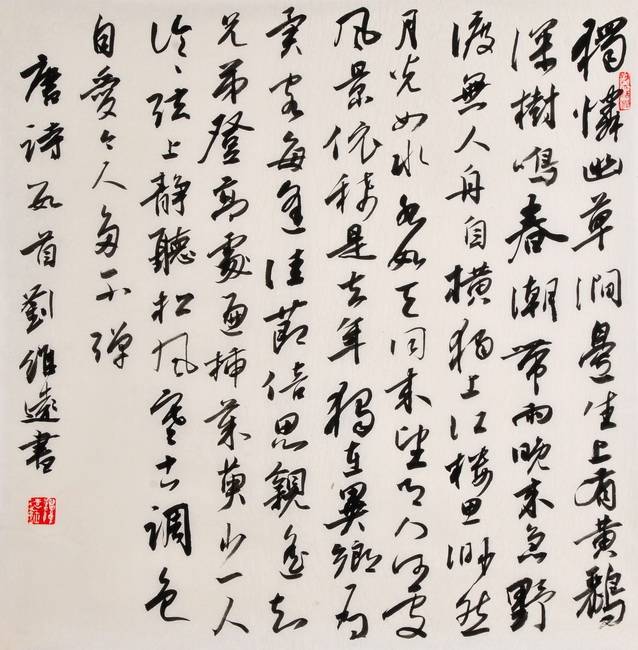 獨憐幽草澗邊生上有黃鸝
深樹鳴春潮帶雨晚來急野
渡無人舟自橫獨上江樓思渺然
月光如水水如天同來望月人何處
風景依稀是去年獨在異鄉為
異客每逢佳節倍思親遙知
兄弟登高處遍插茱萸少一人
泠泠弦上靜聽松風寒古調雖
自愛今人多不彈
唐詩數首劉維遠書